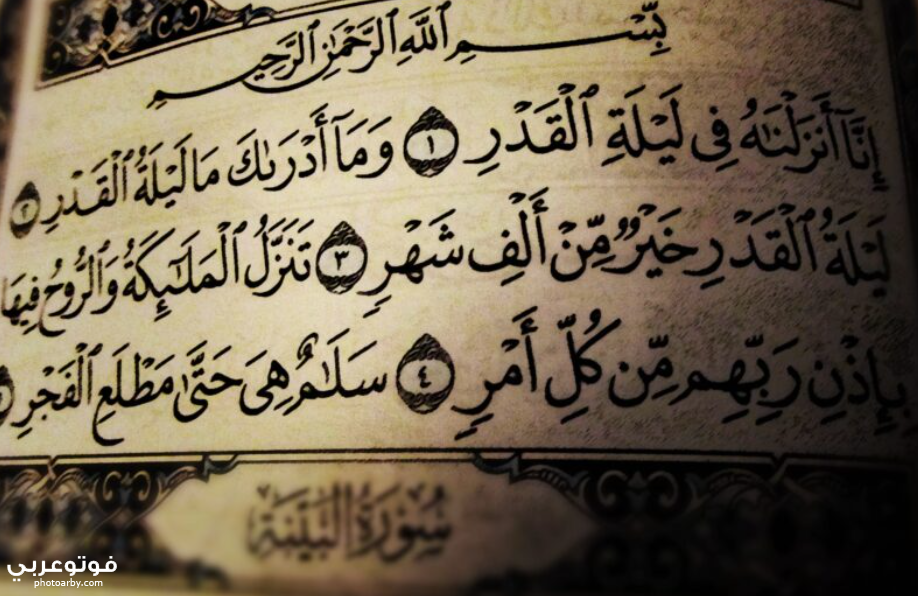 بِسْمِ ٱللَّهِ ٱلرَّحْمَٰنِ ٱلرَّحِيمِ
إِنَّآ أَنزَلْنَٰهُ فِى لَيْلَةِ ٱلْقَدْرِ ١ وَمَآ أَدْرَىٰكَ مَا لَيْلَةُ ٱلْقَدْرِ ٢
لَيْلَةُ ٱلْقَدْرِ خَيْرٌ مِّنْ أَلْفِ شَهْرٍ ٣ تَنَزَّلُ ٱلْمَلَٰٓئِكَةُ وَٱلرُّوحُ فِيهَا
بِإِذْنِ رَبِّهِم مِّن كُلِّ أَمْرٍ ٤ سَلَٰمٌ هِىَ حَتَّىٰ مَطْلَعِ ٱلْفَجْرِ
سُورَةُ البَيِّنَةِ
فوتوعربي
photoarby.com